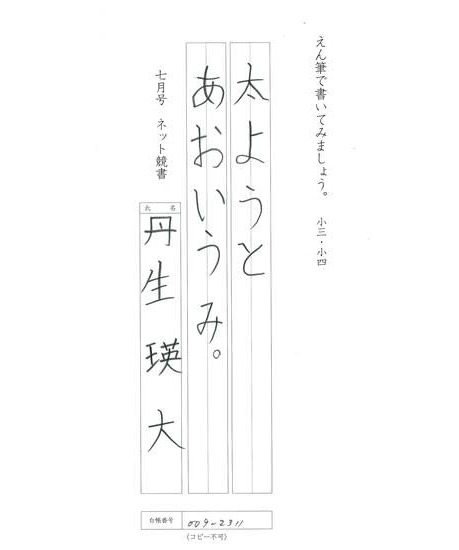 えん筆で書いてみましょう。 小三・小四
太ようと
あおいうみ。
七月号 ネット競書
氏名
丹生瑛大
台帳番号 009-2311
(コピー不可)